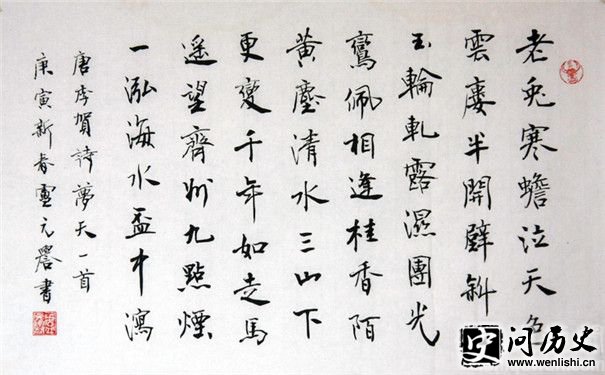 老兔寒蟾泣天色
雲廔半開壁斜
玉輪軋露濕團光
鸞佩相逢桂香陌
黃塵清水三山下
更變千年如走馬
遥望齊州九點煙
一泓海水盃中瀉
唐李賀詩夢天一首
庚寅新春元書
问历史
www.wenlishi.cn